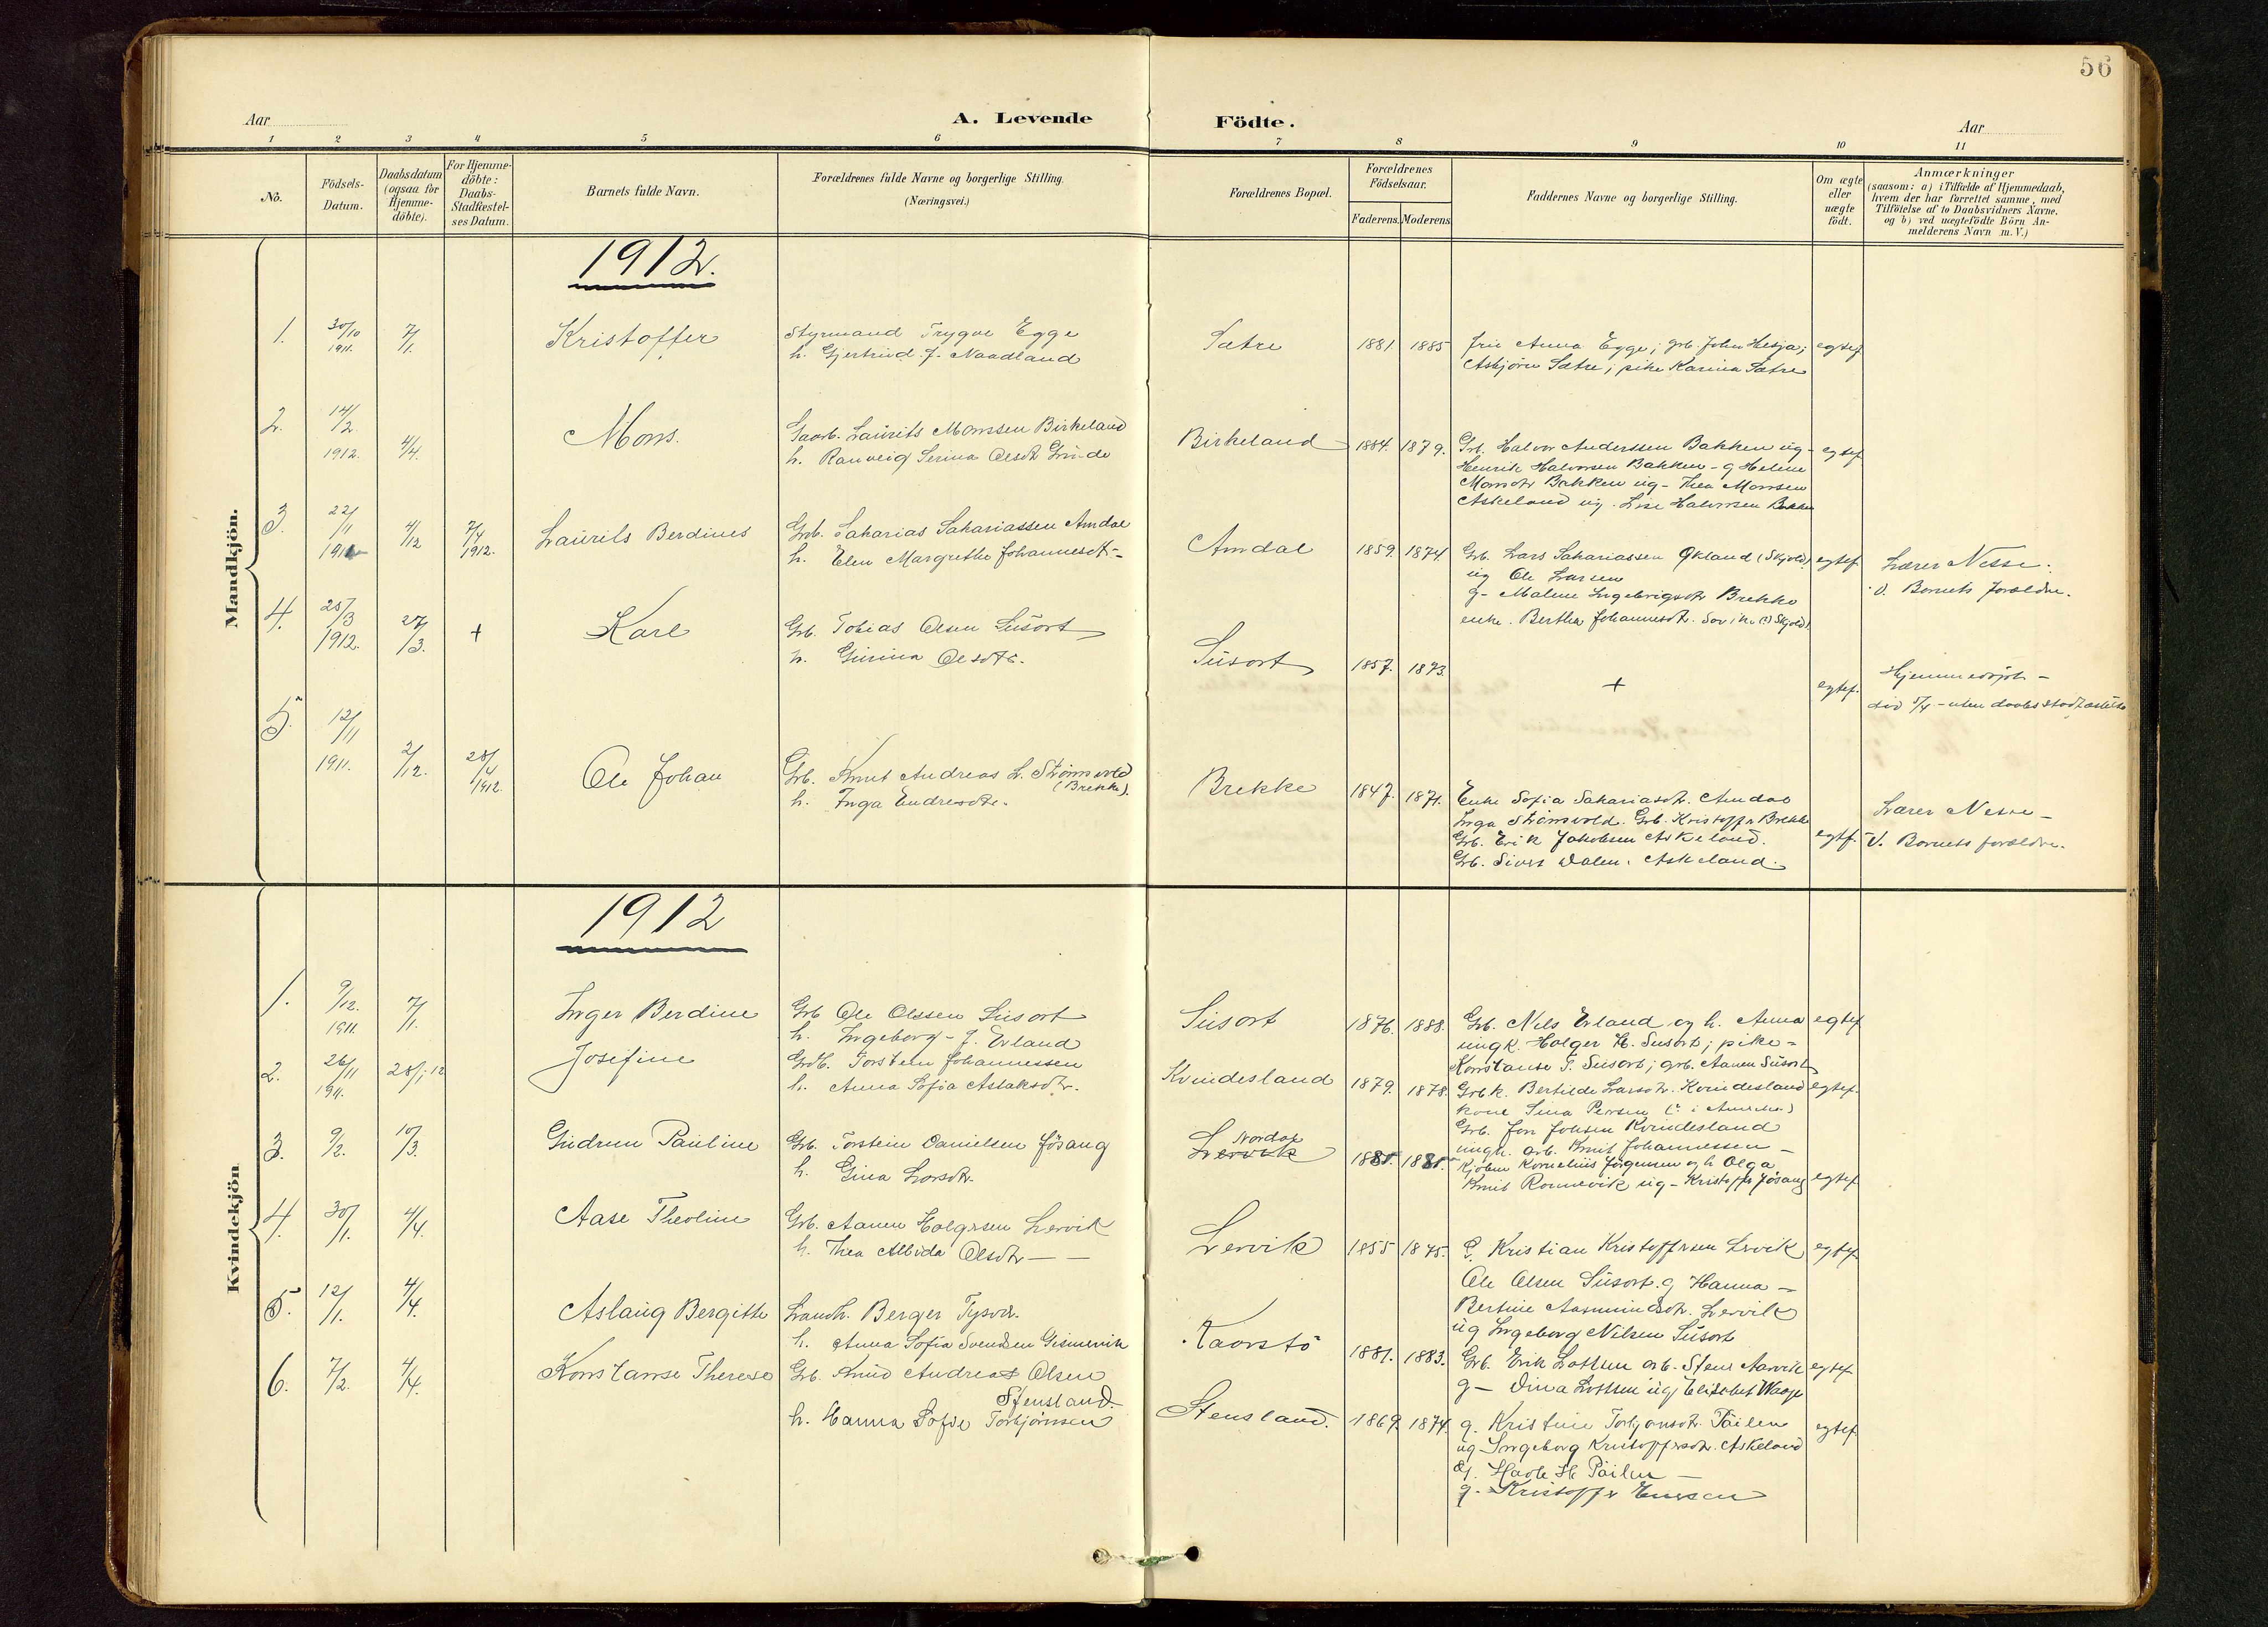 56
Aar
A. Levende
Födte.
Aar
1 2 3 4 5 6 7 8 9 10 11
No.
Födsels-
Datum.
Daabsdatum
(ogsaa for
Hjemme-
döbte).
For Hjemme-
döbte:
Daabs-
Stadfæstel-
ses Datum.
Barnets fulde Navn.
Forældrenes fulde Navne og borgerlige Stilling.
(Næringsvei.)
Forældrenes Bopæl.
Forældrenes
Födselsaar.
Faderens. Moderens
Faddernes Navne og borgerlige Stilling.
Om ægte
eller
uægte
födt.
Anmærkninger
(saasom: a) i Tilfælde af Hjemmedaab,
hvem der har forrettet samme, med
Tilföielse af to Daabsvidners Navne.
og b) ved uægtefödte Börn An-
melderens Navn m. V.)
Mandkjön.
1912.
1. 30/10 1911. 7/1. Kristoffer
Styrmand Trygve Egge
h. Gjertrud J. Naadland
Sætre 1881 1885
frue Anna Egge; grb. John Hesja;
Asbjörn Sætre; pike Karina Sætre
egtef
2. 14/2 1912. 4/4. Mons.
Gaarb. Laurits Monssen Birkeland
h. Ranveig Serina Olsdtr Grinde
Birkeland 1884. 1879.
Grb. Halvor Anderssen Bakken ug-
Henrik Halvorsen Bakken - g Helene
Monsdtr Bakken ug - Thea Monsen
Askeland ug. Lise Halvorsen Bakken
egtef
3. 22/11 4/12 7/4 1912. Laurits Berdines
Grb. Sakarias Sakariassen Amdal
h. Elen Margrethe Johannesdtr -
Amdal 1859. 1874.
Grb. Lars Sakariassen Økland (Skjold)
ug Ole Larsen
g - Malene Ingebrigsdtr Brekke
enke. Bertha Johannesdtr. (Skjold)
egtef
Lærer Nesse.
v. Barnets forældre.
4. 25/3 1912. 27/3. + Karl
Grb. Tobias Olsen Susort
h. Gurina Olsdtr.
Susort 1857. 1873.
+
egtef.
Hjemmedöpt -
död 5/4 - uten daabsstadfæstelse
5. 12/11 1911. 2/12. 28/4 1912. Ole Johan
Grb. Knut Andreas L. Strömsvold
(Brekke).
h. Inga Endresdtr.
Brekke 1847. 1871.
Enke Sofia Sakariasdtr. Amdal
Inga Strömsvold. Grb. Kristoffer Brekke
Grb. Erik Jakobsen Askeland.
Grb. Sivert Dalen. Askeland.
egtf.
Lærer Nesse -
v. Barnets forældre.
Kvindekjön
1912
1. 9/12. 1911. 7/1. Inger Berdine
Grb Ole Olssen Susort
h. Ingeborg - J. Erland
Susort 1876. 1888.
Grb. Nils Erland og h. Anna
ungk. Holger H. Susort; pike -
Konstanse T. Susort; grb. Aanen Susort
egtef
2. 26/11 1911. 28/1 12 Josefine
Grdb. Torstein Johannessen
h. Anna Sofia Aslaksdtr.
Kvindesland 1879. 1878.
Grbk. Bertilde Larsdtr. Kvindesland
kone Sina Persen (i Amerika)
Grb. Jon Johsen Kvindesland
ungk. arb. Knut Johannessen -
egtef.
3. 9/2. 10/3. Gudrun Pauline
Grb. Torstein Danielsen Jösang
h. Gina Larsdtr.
Nordal
Lervik 1885. 1885.
Kjöbm Kornelius Jörgensen og h Olga
Knut Ronnevik ug - Kristoffer Jösang
egtef
4. 30/1. 4/4. Aase Theoline
Grb. Aanen Holgersen Lervik
h. Thea Albida Olsdtr -
Lervik 1855 1875.
G. Kristian Kristoffersen Lervik
Ole Olsen Susort. g Hanna -
Bertine Aasmundsdtr. Lervik
ug Ingeborg Nilsen Susort
egtef
5. 12/1. 4/4. Aslaug Bergitte
Landh. Berger Tysvær.
h. Anna Sofia Svendsen Gismervik
Kaarstö 1881. 1883.
Grb. Erik Lothsen arb. Stene Aarvik
g - Dina Lothsen ug Elisabet Waage
egtef
6. 7/2. 4/4. Konstanse Therese
Grb. Knud Andreas Olsen
Stensland.
h. Hanna Sofie Torbjörnsen
Stensland. 1869. 1874.
g. Kristine Torbjörnsdtr. Päilen
ug Ingeborg Kristoffersdtr. Askeland
H. Päilen -
g. Kristoffer
egtef